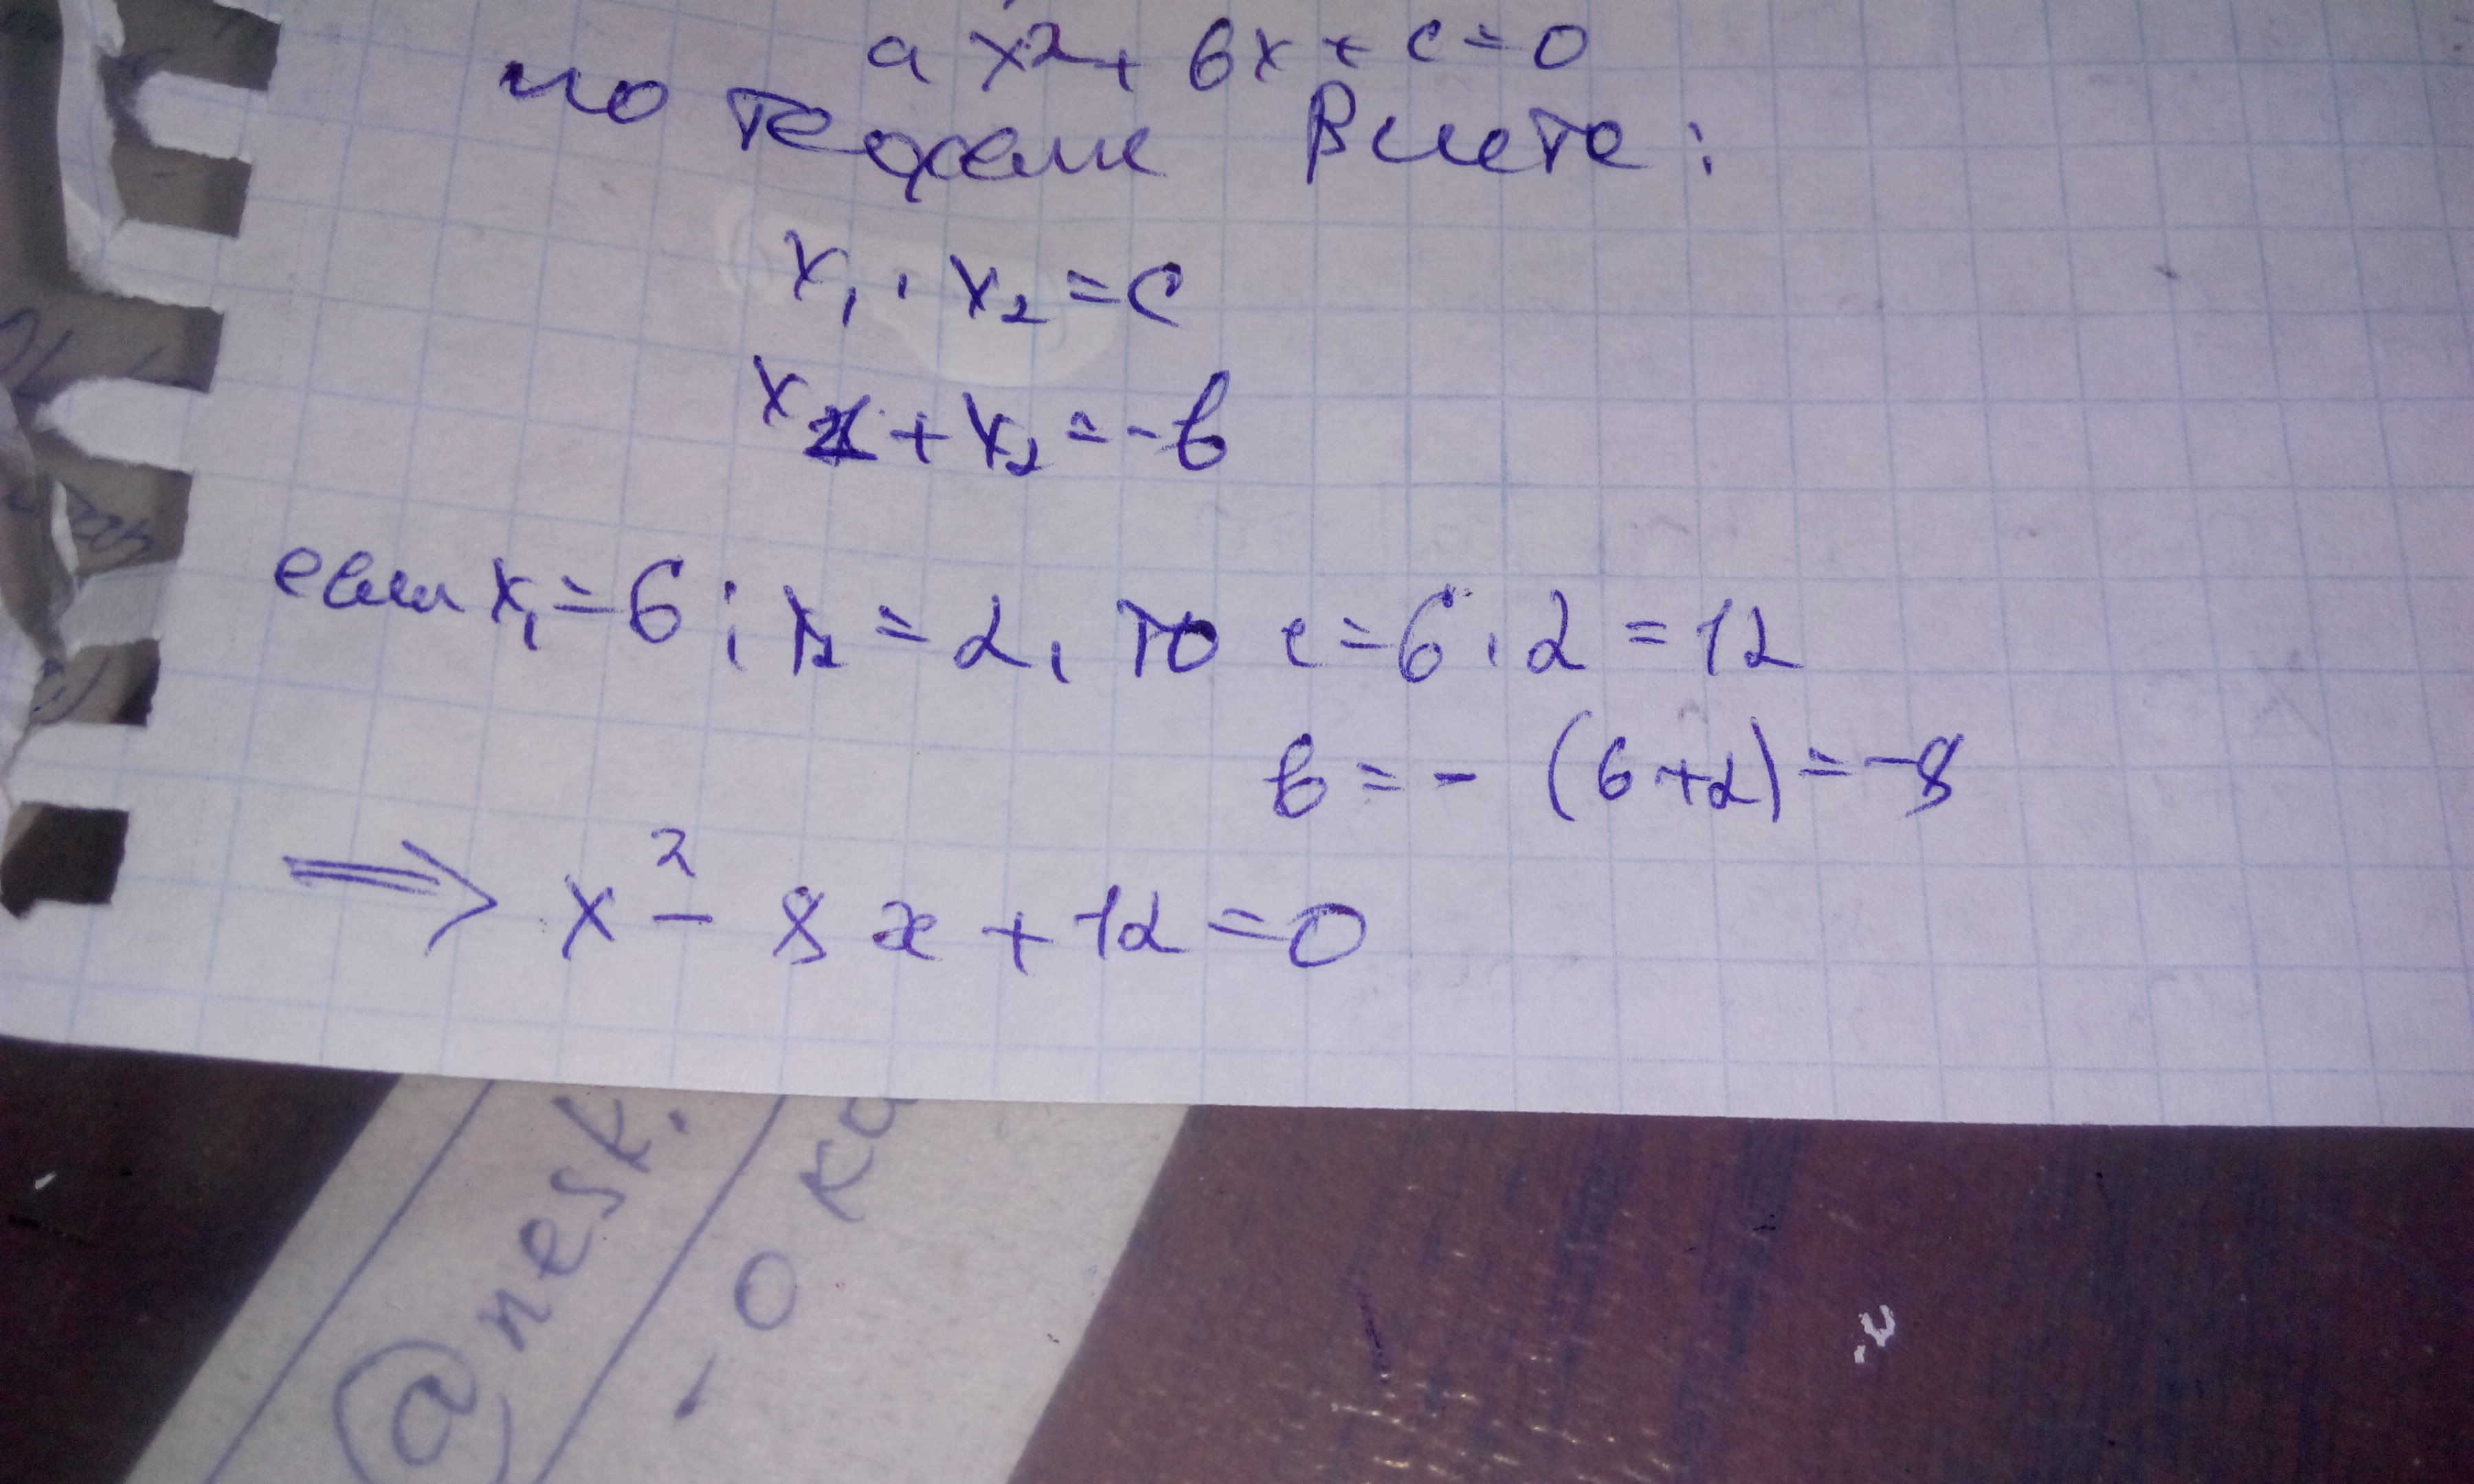 ax2 + bx + c = 0
по теореме Виета:
x₁ · x₂ = c
x₁ + x₂ = -b
если x₁ = 6; x₂ = 2, то c = 6 · 2 = 12
b = - (6+2) = -8
⇒ x² - 8x + 12 = 0
@nesk.